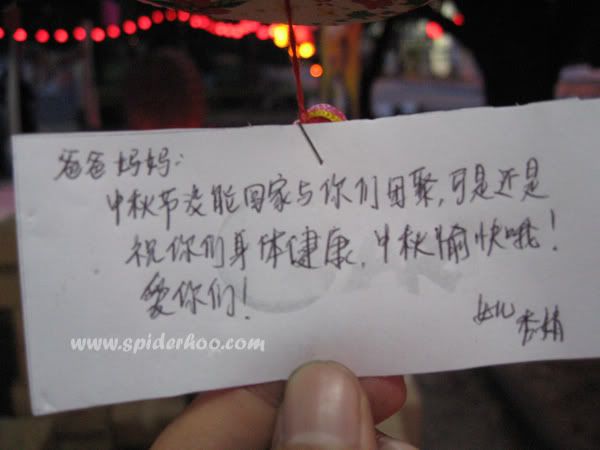 爸爸妈妈:
中秋节没能回家与你们团聚,可是还是
祝你们身体健康,中秋愉快哦!
爱你们!
女儿
www.spiderhoo.com